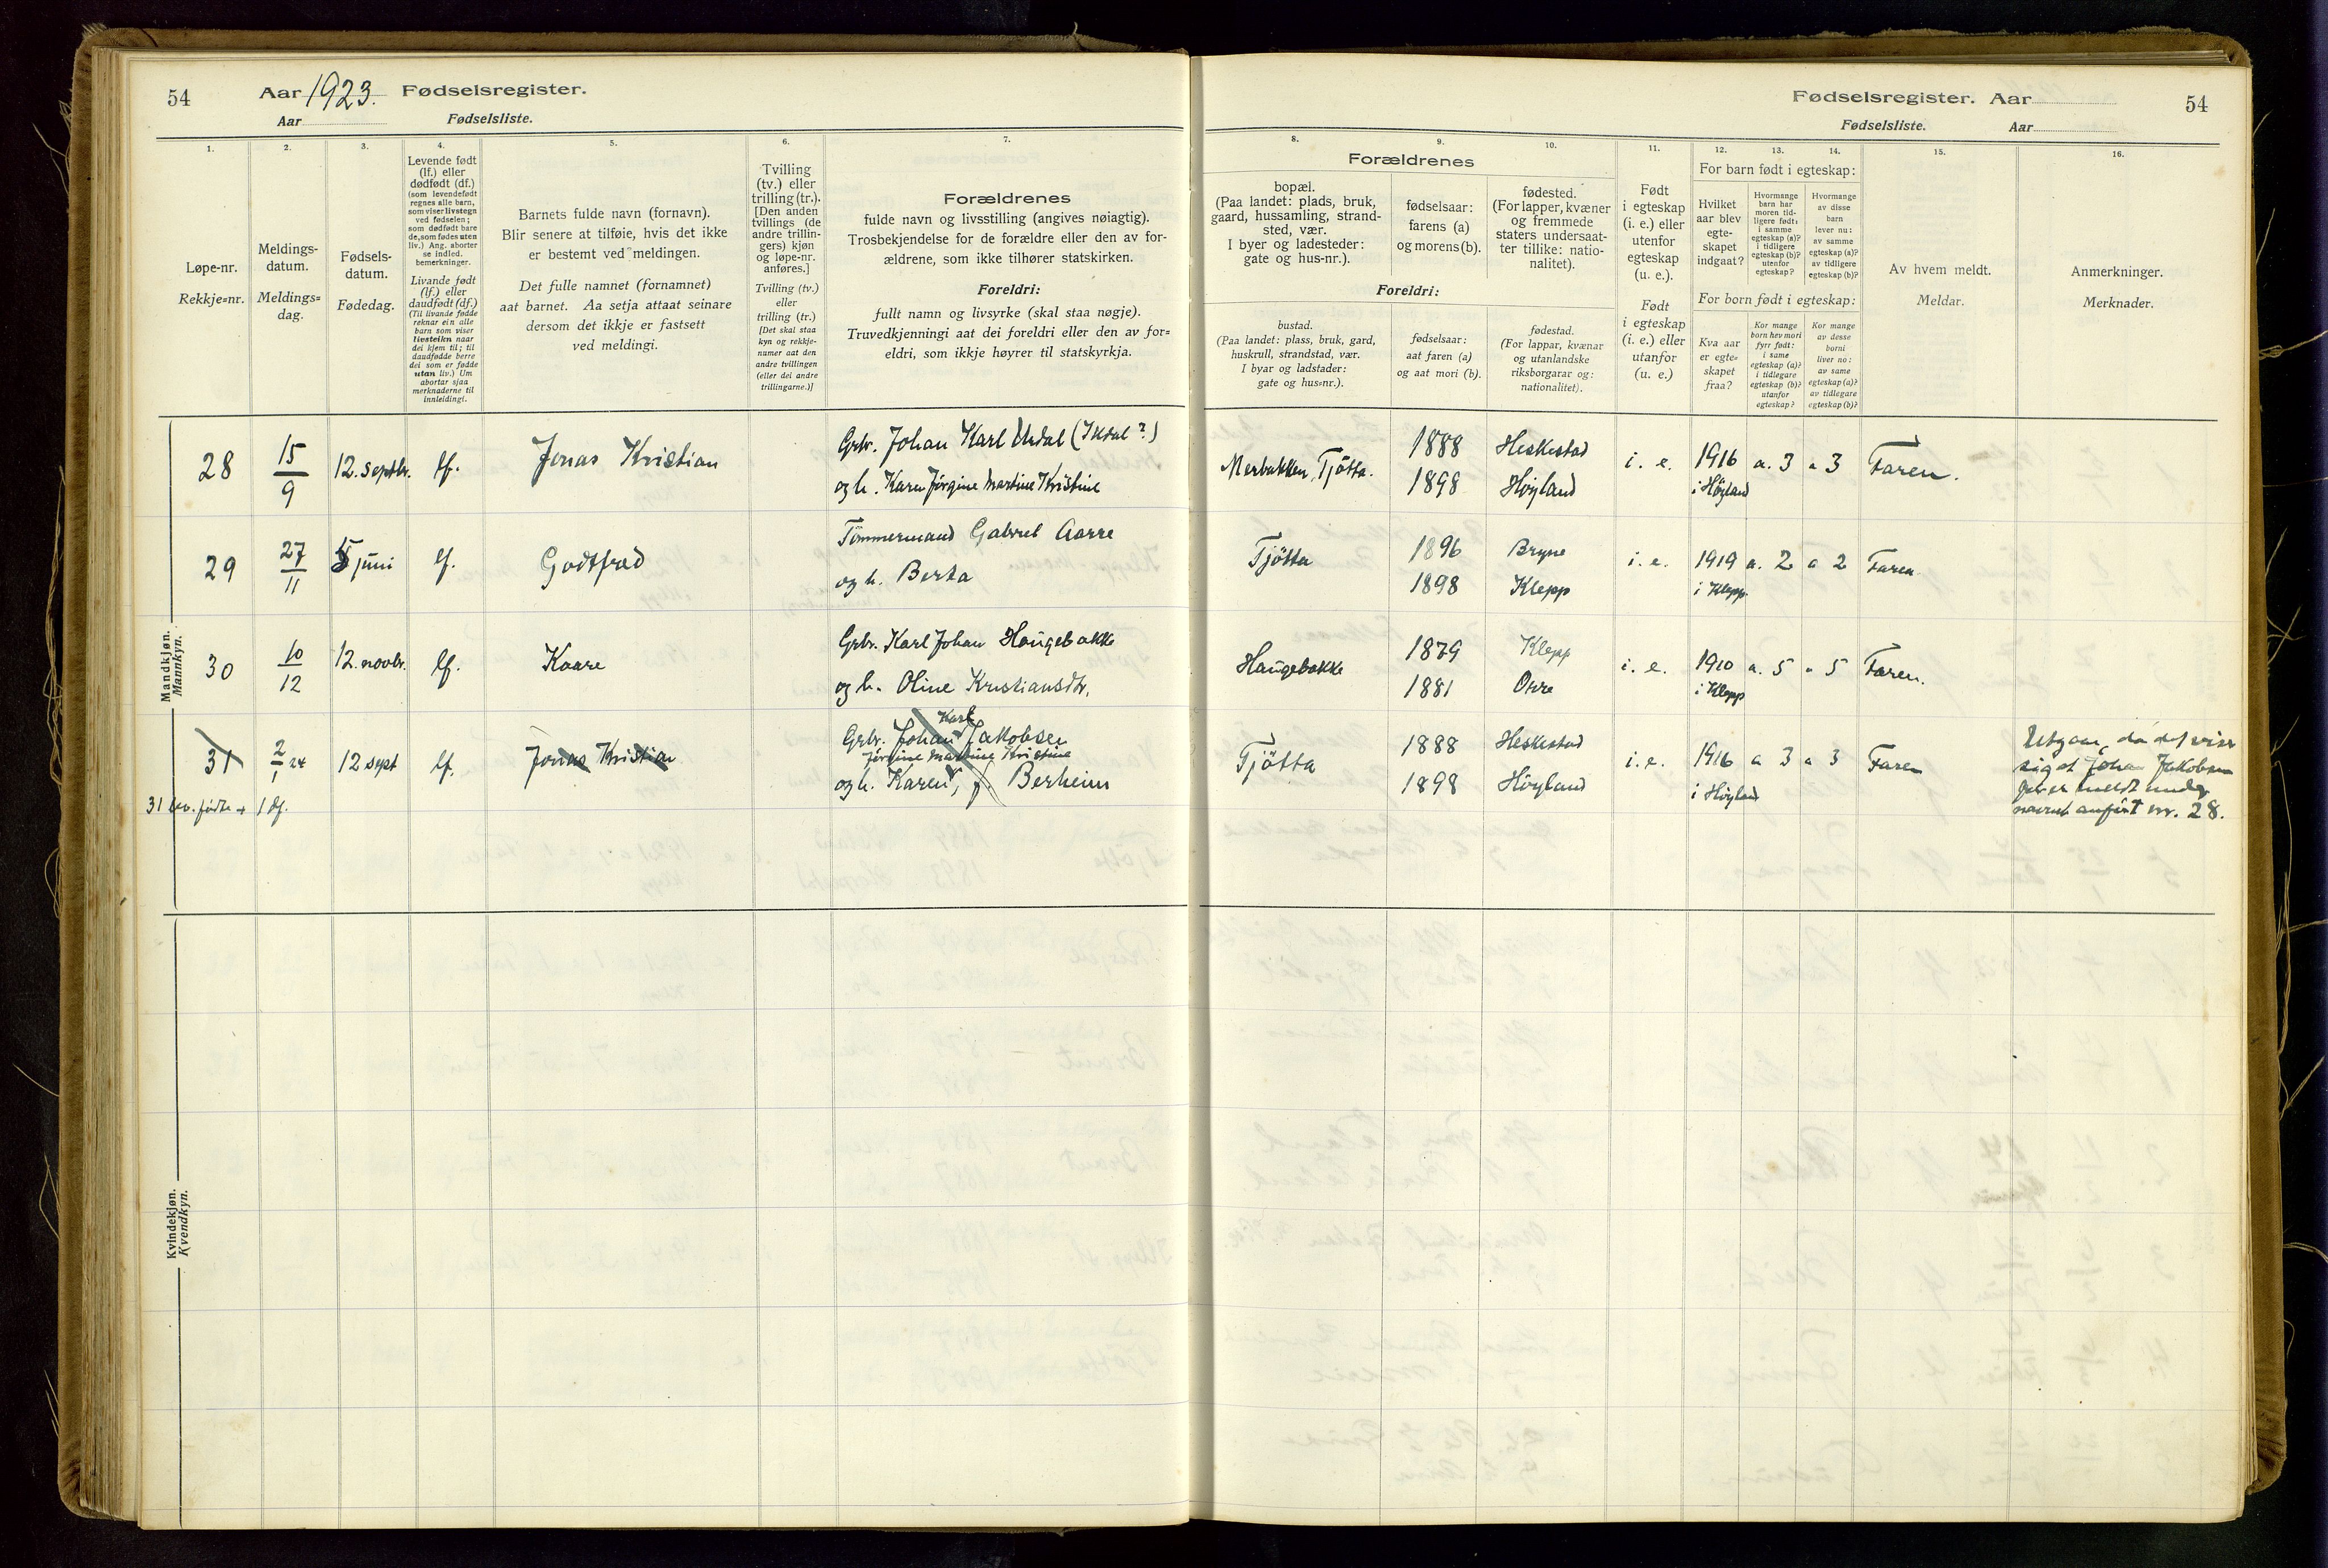 54
Aar 1923. Fødselsregister.
Aar Fødselsliste.
1.
Løpe-nr.
Rekkje=nr.
2.
Meldings-
datum.
Meldings=
dag.
3.
Fødsels-
datum.
Fødedag.
4.
Levende født
(lf.) eller
dødfødt (df.)
(som levendefødt
regnes alle barn,
som viser livstegn
ved fødselen;
som dødfødt bare
de, som fødes uten
liv.) Ang. aborter
se indled.
bemerkninger.
Livande født
(lf.) eller
daudfødt (df.)
(Til livande fødde
reknar ein alle
barn som viser
livsteikn naar
dei kjem til; til
daudfødde berre
dei som er fødde
utan liv.) Um
abortar sjaa
merknaderne til
innleidingi.
5.
Barnets fulde navn (fornavn).
Blir senere at tilføie, hvis det ikke
er bestemt ved meldingen.
Det fulle namnet (fornamnet)
aat barnet. Aa setja attaat seinare
dersom det ikkje er fastsett
ved meldingi.
6.
Tvilling
(tv.) eller
trilling (tr.).
[Den anden
tvillings (de
andre trillin-
gers) kjøn
og løpe-nr.
anføres.]
Tvilling (tv.)
eller
trilling (tr.)
[Det skal staa
kyn og rekkje-
numer aat den
andre tvillingen
(eller dei andre
trillingarne.)]
7.
Forældrenes
fulde navn og livsstilling (angives nøiagtig).
Trosbekjendelse for de forældre eller den av for-
ældrene, som ikke tilhører statskirken.
Foreldri:
fullt namn og livsyrke (skal staa nøgje).
Truvedkjenningi aat dei foreldri eller den av for=
eldri, som ikkje høyrer til statskyrkja.
Fødselsregister. Aar
54
Fødselsliste. Aar
8.
Forældrenes
bopæl.
(Paa landet: plads, bruk,
gaard, hussamling, strand-
sted, vær.
I byer og ladesteder:
gate og hus-nr.).
Foreldri:
bustad.
(Paa landet: plass, bruk, gard,
huskrull, strandstad, vær.
I byar og ladstader:
gate og hus=nr.).
9.
fødselsaar:
farens (a)
og morens (b).
fødselsaar:
aat faren (a)
og aat mori (b).
10.
fødested.
(For lapper, kvæner
og fremmede
staters undersaat-
ter tillike: natio-
nalitet).
fødestad.
(For lappar, kvænar
og utanlandske
riksborgarar og:
nationalitet).
11.
Født
i egteskap
(i. e.) eller
utenfor
egteskap
(u. e.).
Født
i egteskap
(i. e.) eller
utanfor
(u. e.)
12. 13. 14.
For barn født i egteskap:
Hvilket
aar blev
egte-
skapet
indgaat?
Hvormange
barn har
moren tid-
ligere født:
i samme
egteskap (a)?
i tidligere
egteskap (b)?
utenfor
egteskap?
Hvormange
av disse
barn
lever nu:
av samme
egteskap (a)?
av tidligere
egteskap (b)?
For born født i egteskap:
Kva aar
er egte=
skapet
fraa?
Kor mange
born hev mori
fyrr født:
i same
egteskap (a)?
i tidlegare
egteskap (b)?
utanfor
egteskap?
Kor mange
av desse
borni
liver no:
av same
egteskap (a)?
av tidlegare
egteskap (b)?
15.
Av hvem meldt.
Meldar.
16.
Anmerkninger.
Merknader.
Mandkjøn.
Mankyn.
28 15/9 12. septbr. lf. Jonas Kristian Grbr. Johan Karl Urdal (Ikdal?) Merbakken, Tjøtta. 1888 Heskestad i. e. 1916 a. 3 a 3 Faren.
og h. Karen Jørgine Martine Kristine 1898 Høyland i Høyland
29 27/11 5 juni lf. Godtfred Tømmermand Gabriel Aarre Tjøtta 1896 Bryne i. e. 1919 a. 2 a 2 Faren
og h. Berta 1898 Klepp i Klepp.
30 10/12 12. novbr. lf. Kaare Grbr. Karl Johan Haugebakke Haugebakke 1879 Klepp i. e. 1910 a. 5 a 5 Faren.
og h. Oline Kristiansdtr. 1881 Orre i Klepp
31 2/1 24 12 sept lf. Jonas Kristian Grbr. Johan Karl Jakobsen Tjøtta 1888 Heskestad i. e. 1916 a 3 a 3 Faren
Jørgine Martine Kristine
og h. Karen, f. Berheim 1898 Høyland i Høyland
Utgaar, da det viser
sig at Johan Jakobsen
er meldt under
navnet anført nr. 28.
31 lev. fødte + 1 df.
Kvindekjøn.
Kvendkyn.